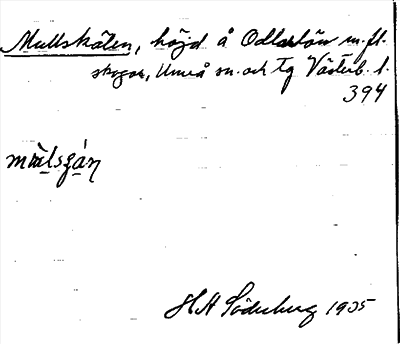 Mullskälen, höjd å Odlarön m. fl.
skogar, Umeå sn. och tg Västerb. l.
394
H H Söderberg 1935